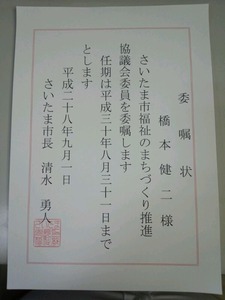 委嘱状
橋本健二様
さいたま市福祉のまちづくり推進
協議会委員を委嘱します
任期は平成三十年八月三十一日まで
とします
平成二十八年九月一日
さいたま市長 清水勇人